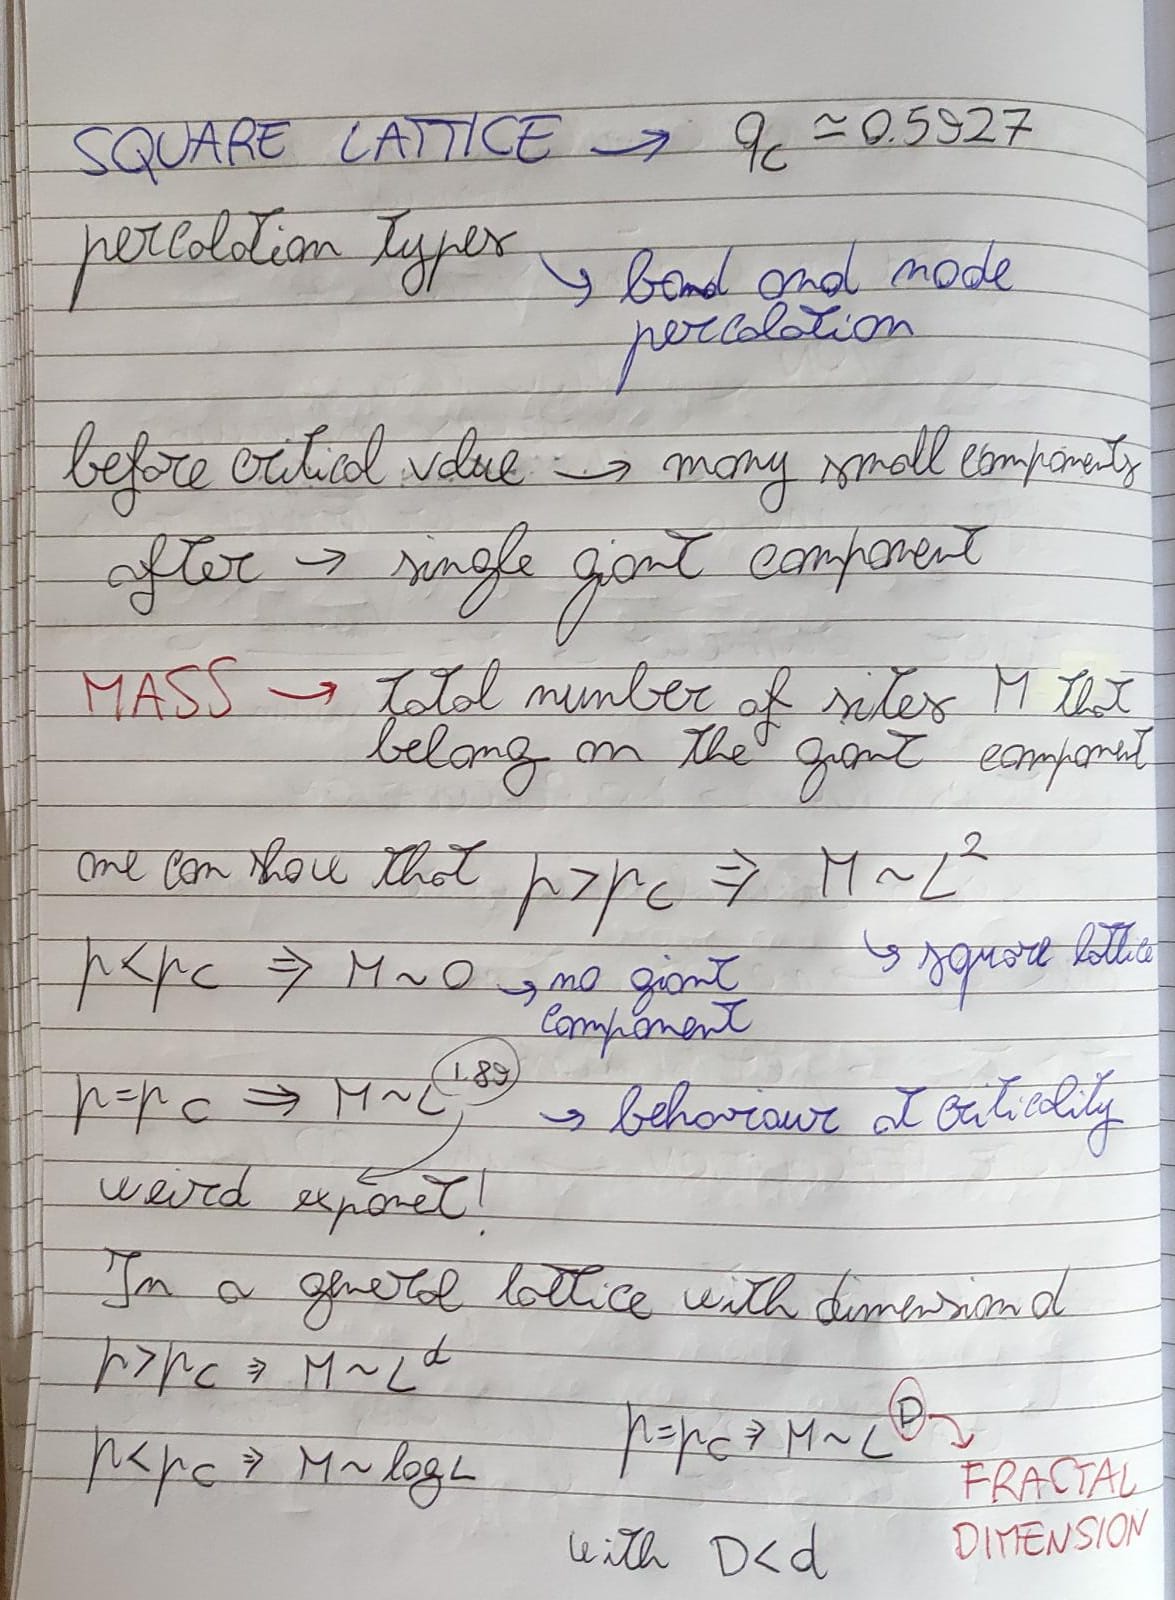 SQUARE LATTICE → q_c ≃ 0.5927
percolation types
↘ bond and node
percolation
before critical value → many small components
after → single giant component
MASS → total number of sites M that
belong on the giant component
one can show that p > p_c ⇒ M ~ L²
↳ square lattice
p < p_c ⇒ M ~ 0 → no giant
component
p = p_c ⇒ M ~ L^1.89 → behaviour at criticality
weird exponet!
In a general lattice with dimension d
p > p_c ⇒ M ~ L^d
p = p_c ⇒ M ~ L^D
p < p_c ⇒ M ~ log L
FRACTAL
DIMENSION
with D < d